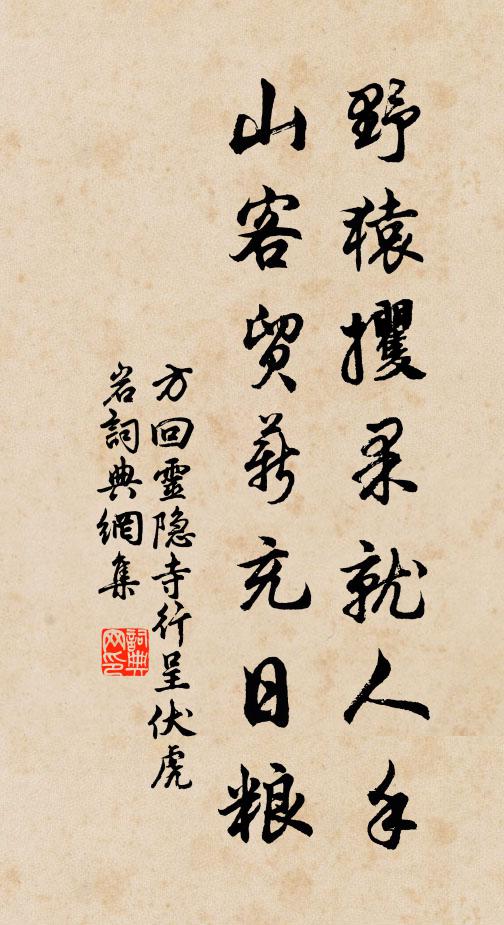 野猿攫果就人手
山客貿薪充日粮
方回靈隐寺行呈伏虎
岩詞典網集
詞典
网印